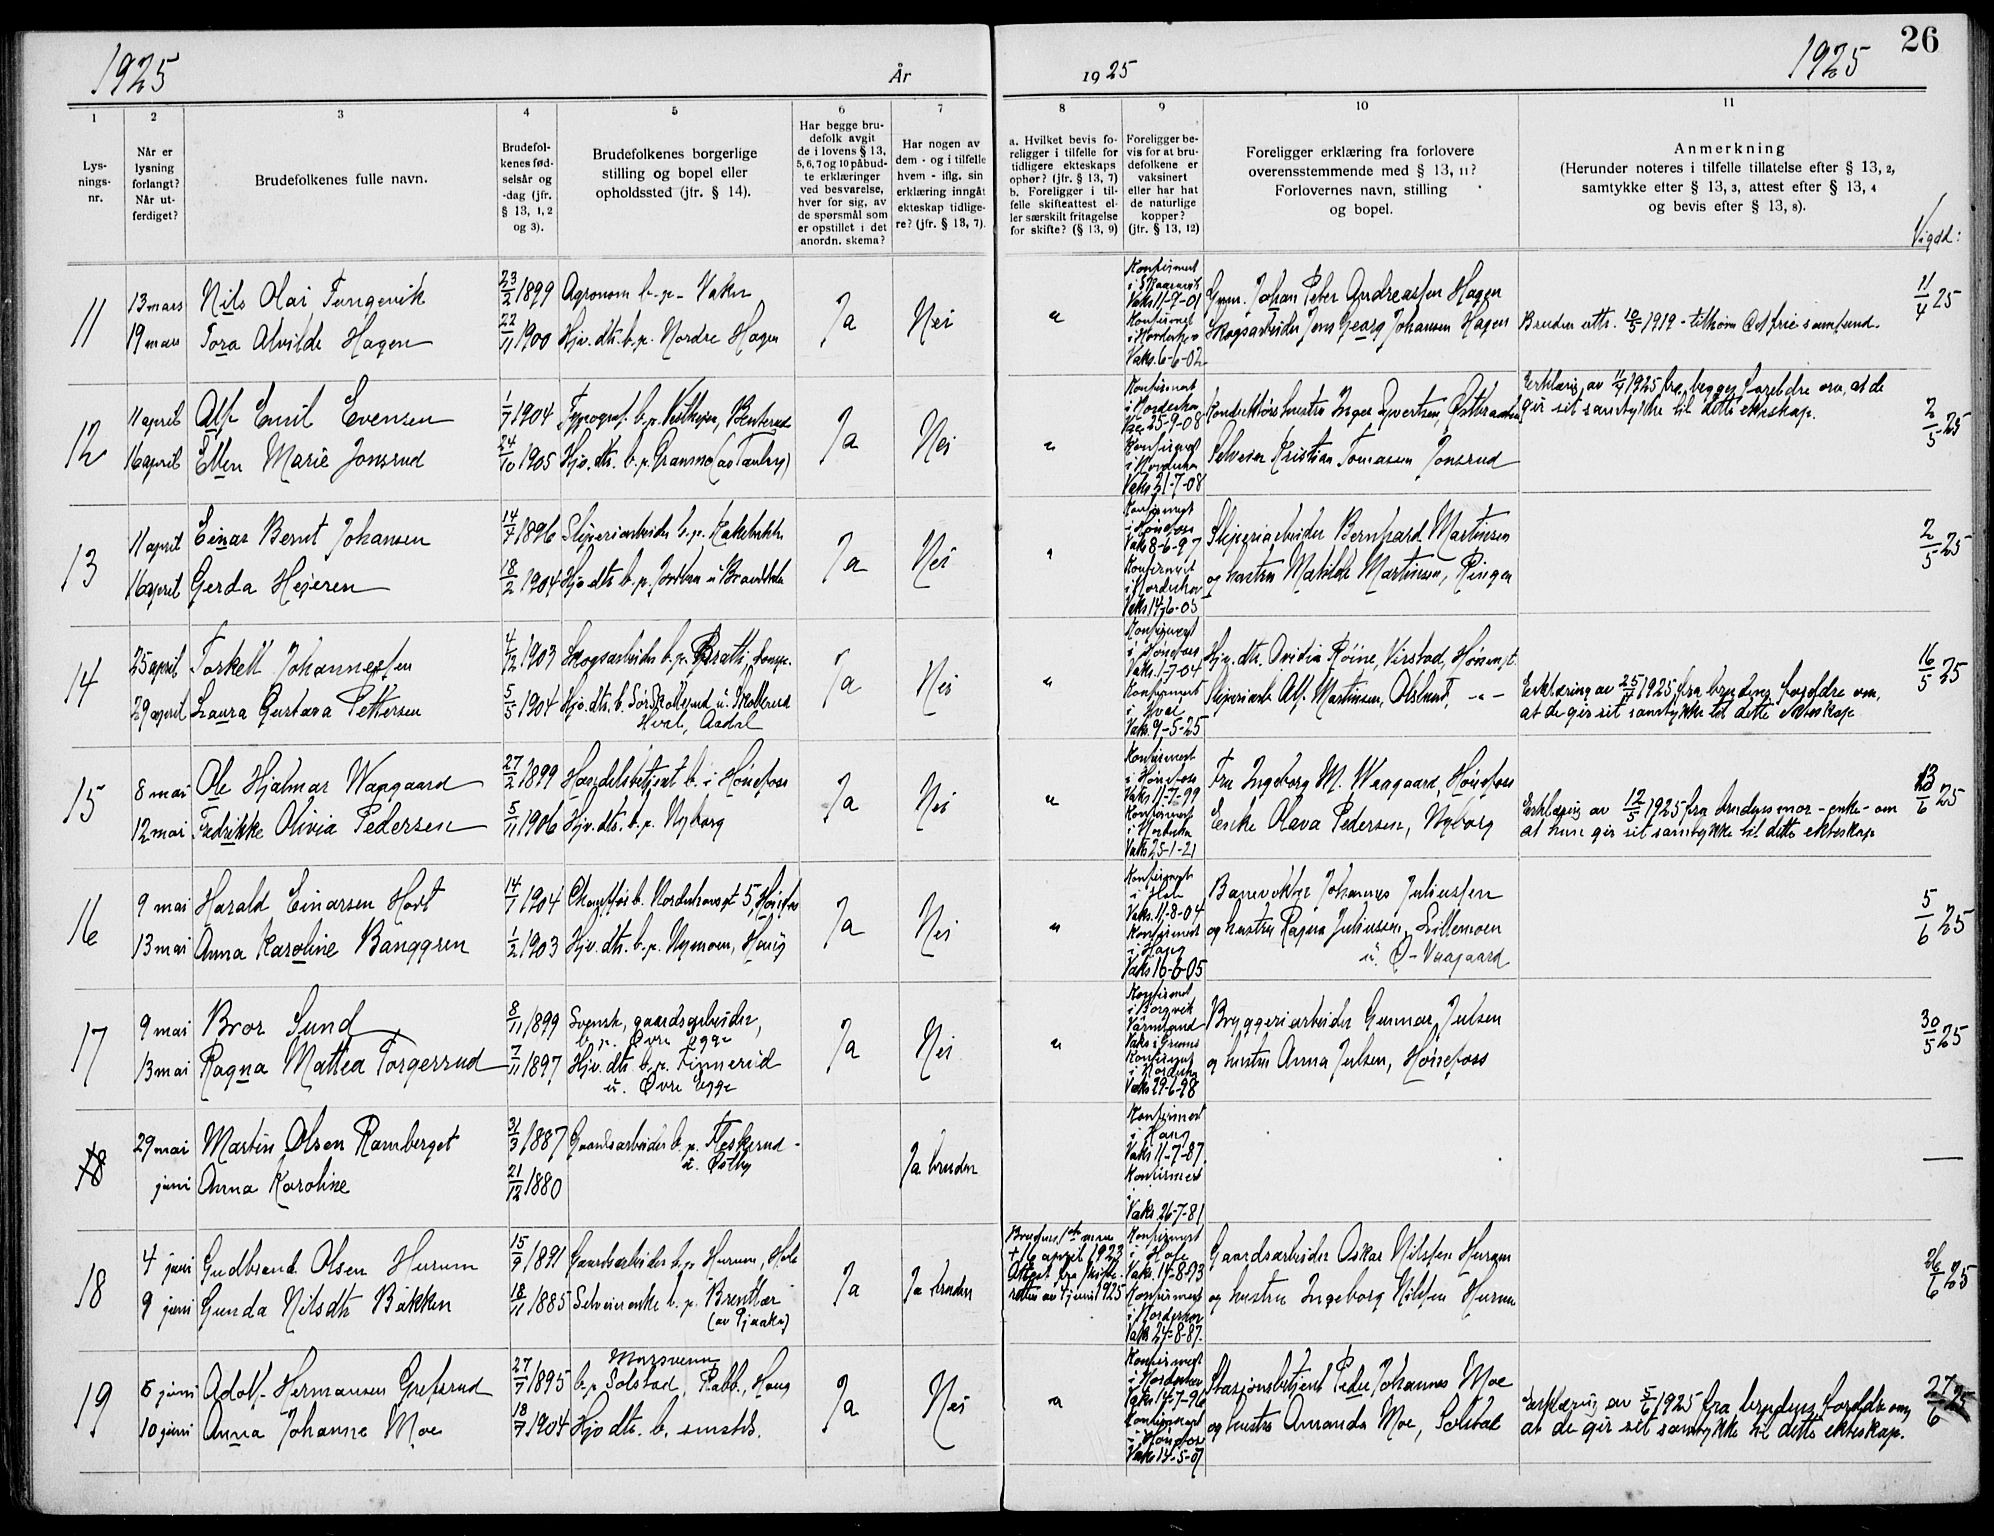 1925
År
1925
1925
26
1
2
3
4
5
6
7
8
9
10
11
Lys-
nings-
nr.
Når er
lysning
forlangt?
Når ut-
ferdiget?
Brudefolkenes fulle navn.
Brudefol-
kenes fød-
selsår og
-dag (jfr.
§ 13, 1, 2
og 3).
Brudefolkenes borgerlige
stilling og bopel eller
opholdssted (jfr. § 14).
Har begge bru-
defolk avgit
de i lovens § 13,
5, 6, 7 og 10 påbud-
te erklæringer
ved besvarelse,
hver for sig, av
de spørsmål som
er opstillet i det
anordn. skema?
Har nogen av
dem - og i tilfelle
hvem - iflg. sin
erklæring inngåt
ekteskap tidlige-
re? (jfr. § 13, 7).
a. Hvilket bevis fo-
religger i tilfelle for
tidligere ekteskaps
ophør? (jfr. § 13, 7)
b. Foreligger i til-
felle skifteattest el-
ler særskilt fritagelse
for skifte? (§ 13, 9)
Foreligger be-
vis for at bru-
defolkene er
vaksinert
eller har hat
de naturlige
kopper?
(jfr. § 13, 12)
Foreligger erklæring fra forlovere
overensstemmende med § 13, 11?
Forlovernes navn, stilling
og bopel.
Anmerkning
(Herunder noteres i tilfelle tillatelse efter § 13, 2,
samtykke efter § 13, 3, attest efter § 13, 4
og bevis efter § 13, 8).
Vigd:
11
13 mars Nils Olai Tungevik 23/2 1899 Agronom b. p. Vaker
19 mars Tora Alvilde Hagen 22/11 1900 Hjv. dtr. b. p. Nordre Hagen
Ja
Nei
Konfirmert
Vaks 11-9-01
Konfirmert
i Norderhov
Vaks. 6-6-02
Grm. Johan Peter Andreassen Hagen
Skogsarbeider Jens Georg Johansen Hagen
Bruden uttr. 10/5 1919 - tilhører Det frie samfund.
11/4 25
12
11 april Alf Emil Evensen 1/7 1904 Typograf b. p.
16 april Ellen Marie Jonsrud 24/10 1905 Hjv. dtr. b. p. Granmo
Ja
Nei
Konfirmert
i Norderhov
Vac. 25-9-08
Konfirmert
i Norderhov
Vaks 21-7-08
hustru Inger Syvertsen,
Selveier Kristian Tomassen Jonsrud
Erklæring av 11/4 1925 fra begges foreldre om, at de
gir sit samtykke til dette ekteskap.
2/5 25
13
11 april Einar Bernt Johansen 14/7 1896 Sliperiarbeider b. p.
16 april Gerda Hejeren 18/2 1904 Hjv. dtr. b. p.
Ja
Nei
Konfirmert
i Hønefoss
Vaks 8-6-97
Konfirmert
i Norderhov
Vaks 14-6-05
Sliperiarbeider Bernhard Martinsen
og hustru Matilde Martinsen, Ringen
2/5 25
14
25 april Torkell Johannessen 4/12 1903 Skogsarbeider b. p.
29 april Laura Gustava Pettersen 5/5 1904 Hjv. dtr. b. Sør Skollerud u. Skollerud
Hval, Aadal
Ja
Nei
Konfirmert
i Hønefoss
Vaks. 1-7-04
Konfirmert
i Hval
Vaks. 9-5-25
Hjv. dtr. Ovidia Røine, Virstad,
Sliperiarb. Alf Martinsen,
Erklæring av 25/4 1925 fra brudens foreldre om,
at de gir sit samtykke til dette ekteskap
16/5 25
15
8 mai Ole Hjalmar Waagaard 27/2 1899 Handelsbetjent b. i Hönefoss
12 mai Fredrikke Olivia Pedersen 5/11 1906 Hjv. dtr. b. p. Nyborg
Ja
Nei
Konfirmert
i Hønefoss
Vaks 11-7-99
Konfirmert
Vaks 25-1-21
Fru Ingeborg M. Waagaard, Hönefoss
Enke Olava Pedersen, Nyborg
Erklæring av 12/5 1925 fra brudens mor - enke - om
at hun gir sit samtykke til dette ekteskap
13/6 25
16
9 mai Harald Einarsen Hort 14/7 1904 Chauffør b. Norderhovsgt 5, Hönefoss
13 mai Anna Karoline Banggren 1/2 1903 Hjv. dtr. b. p. Nymoen, Haug
Ja
Nei
Konfirmert
i Hole
Vaks. 11-8-04
Konfirmert
i Haug
Vaks 16-6-05
Banevokter Johannes Juliussen
og hustru Ragna Juliussen, Lillemoen
u. Ö-Vaagaard
5/6 25
17
9 mai Bror Sund 8/11 1899 Svensk, gaardsarbeider,
b. p. Øvre Egge
13 mai Ragna Mattea Torgersrud 7/11 1897 Hjv. dtr. b. p. Finnerud
u. Øvre Egge
Ja
Nei
Konfirmert
i Borgvik
Värmland
Vaks i Grums
Konfirmert
i Norderhov
Vaks 29-6-98
Bryggeriarbeider Gunnar Julsen
og hustru Anna Julsen, Hönefoss
30/5 25
18
29 mai Martin Olsen Ramberget 31/3 1887 Gaardsarbeider b. p. Fleskerud
u. Østby
juni Anna Karoline 21/12 1880
Ja bruden
Konfirmert
i Haug
Vaks 11-7-87
Konfirmert
i
Vaks. 26-7-81
—
18
4 juni Gudbrand Olsen Hurum 15/9 1891 Gaardsarbeider b. p. Hurum, Hole
9 juni Gunda Nilsdtr Bakken 18/11 1885 Selveierenke b. p. Brentbær
Ja
Ja bruden
Brudens 1ste mann
† 16 april 1923
Attest fra skifte-
retten av 4 juni 1925
Konfirmert
i Hole
Vaks. 14-8-93
Konfirmert
i Norderhov
Vaks 24-8-87.
Gaardsarbeider Oskar Nilssen Hurum
og hustru Ingeborg Nilssen Hurum
26/6 25
19
5 juni Adolf Hermansen Grefsrud 27/7 1895 b. p. Solstad, Rabb., Haug
10 juni Anna Johanne Moe 18/7 1904 Hjv dtr. b. smstds.
Ja
Nei
Konfirmert
i Norderhov
Vaks 14-7-96
Konfirmert
i Hønefoss
Vaks 14-5-07
Stasjonsbetjent Peder Johannes Moe
og hustru Amanda Moe, Solstad
Erklæring av 5/6 1925 fra brudens foreldre om,
at de gir sit samtykke til dette ekteskap.
27/6 25